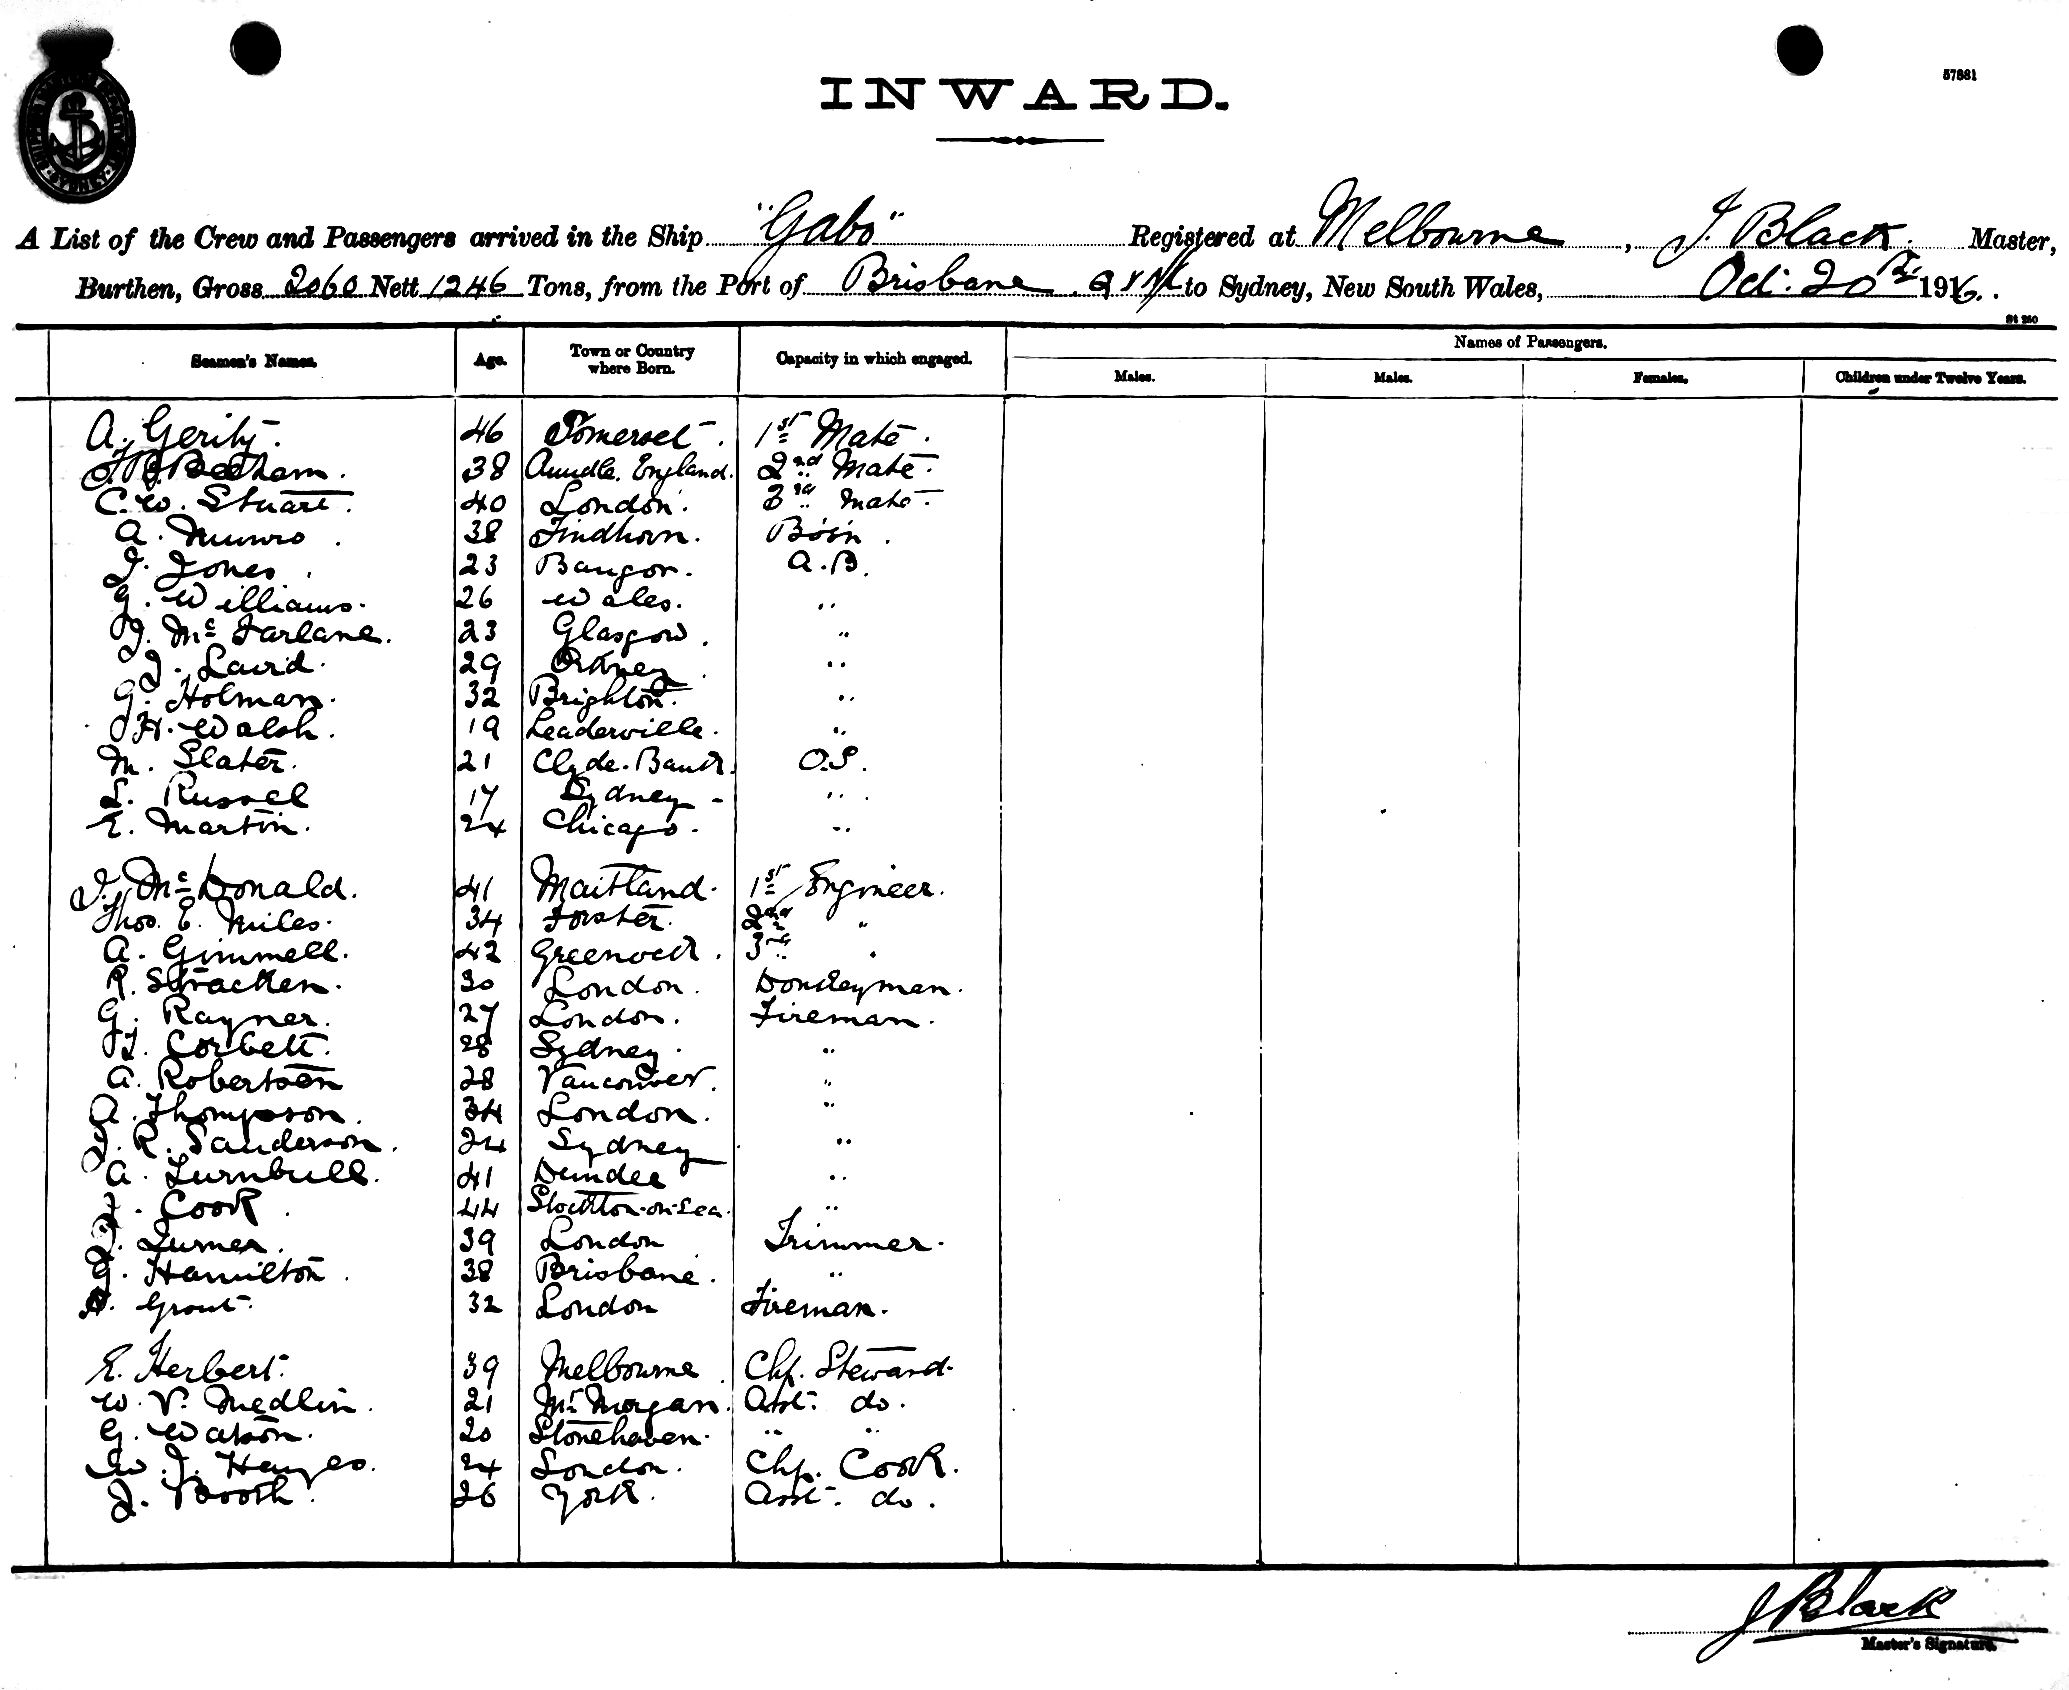 57881
INWARD.
A List of the Crew and Passengers arrived in the Ship "Gabo" Registered at Melbourne, J. Black. Master,
Burthen, Gross 2060 Nett 1246 Tons, from the Port of Brisbane to Sydney, New South Wales, Oct: 20th 1916.
Seamen's Names. Age. Town or Country where Born. Capacity in which engaged. Names of Passengers.
Males. Males. Females. Children under Twelve Years.
A. Gerity. 46 Somerset. 1st Mate.
Beetham. 38 England. 2nd Mate.
C. W. Stuart. 40 London. 3rd Mate.
A. Munro. 38 Findhorn. Bo's'n.
J. Jones. 23 Bangor. A.B.
G. Williams. 26 Wales. "
J. Mc Farlane. 23 Glasgow. "
J. Laird. 29 Orkney. "
G. Holman. 32 Brighton. "
H. Walsh. 19 Leaderville. "
M. Slater. 21 Clyde. Bank. O.S.
L. Russel 17 Sydney - "
E. Martin. 24 Chicago. "
J. Mc Donald. 41 Maitland. 1st Engineer.
Thos. E. Miles. 34 Forster. 2nd "
A. Gimmell. 42 Greenock. 3rd "
R. Stracken. 30 London. Donkeyman.
G. Rayner. 27 London. Fireman.
Corbett. 28 Sydney. "
A. Robertson 28 Vancouver. "
A. Thompson. 34 London. "
J. R. Sanderson. 24 Sydney "
A. Turnbull. 41 Dundee "
Cook. 44 Stockton-on-Sea. "
J. Turner. 39 London Trimmer.
G. Hamilton. 38 Brisbane. "
Grout. 32 London Fireman.
E. Herbert. 39 Melbourne. Chf. Steward.
W. V. Medlin. 21 Mt. Morgan. Asst. do.
G. Watson. 20 Stonehaven. " "
W. J. Hayes. 24 London. Chf. Cook.
J. Booth. 26 York. Asst. do.
J Black
Master's Signature.